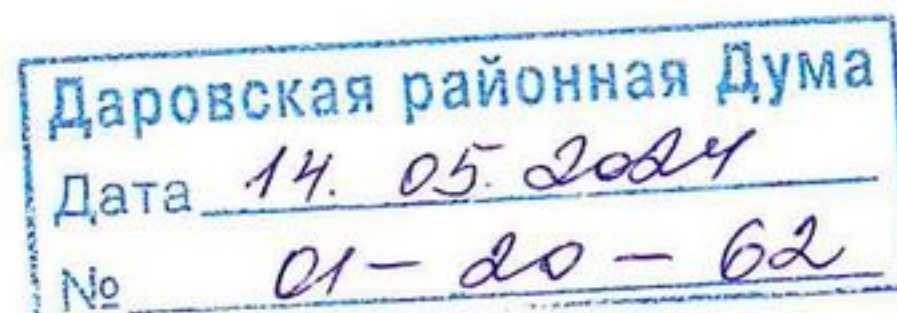 Даровская районная Дума
Дата 14. 05. 2024
№ 01-20-62